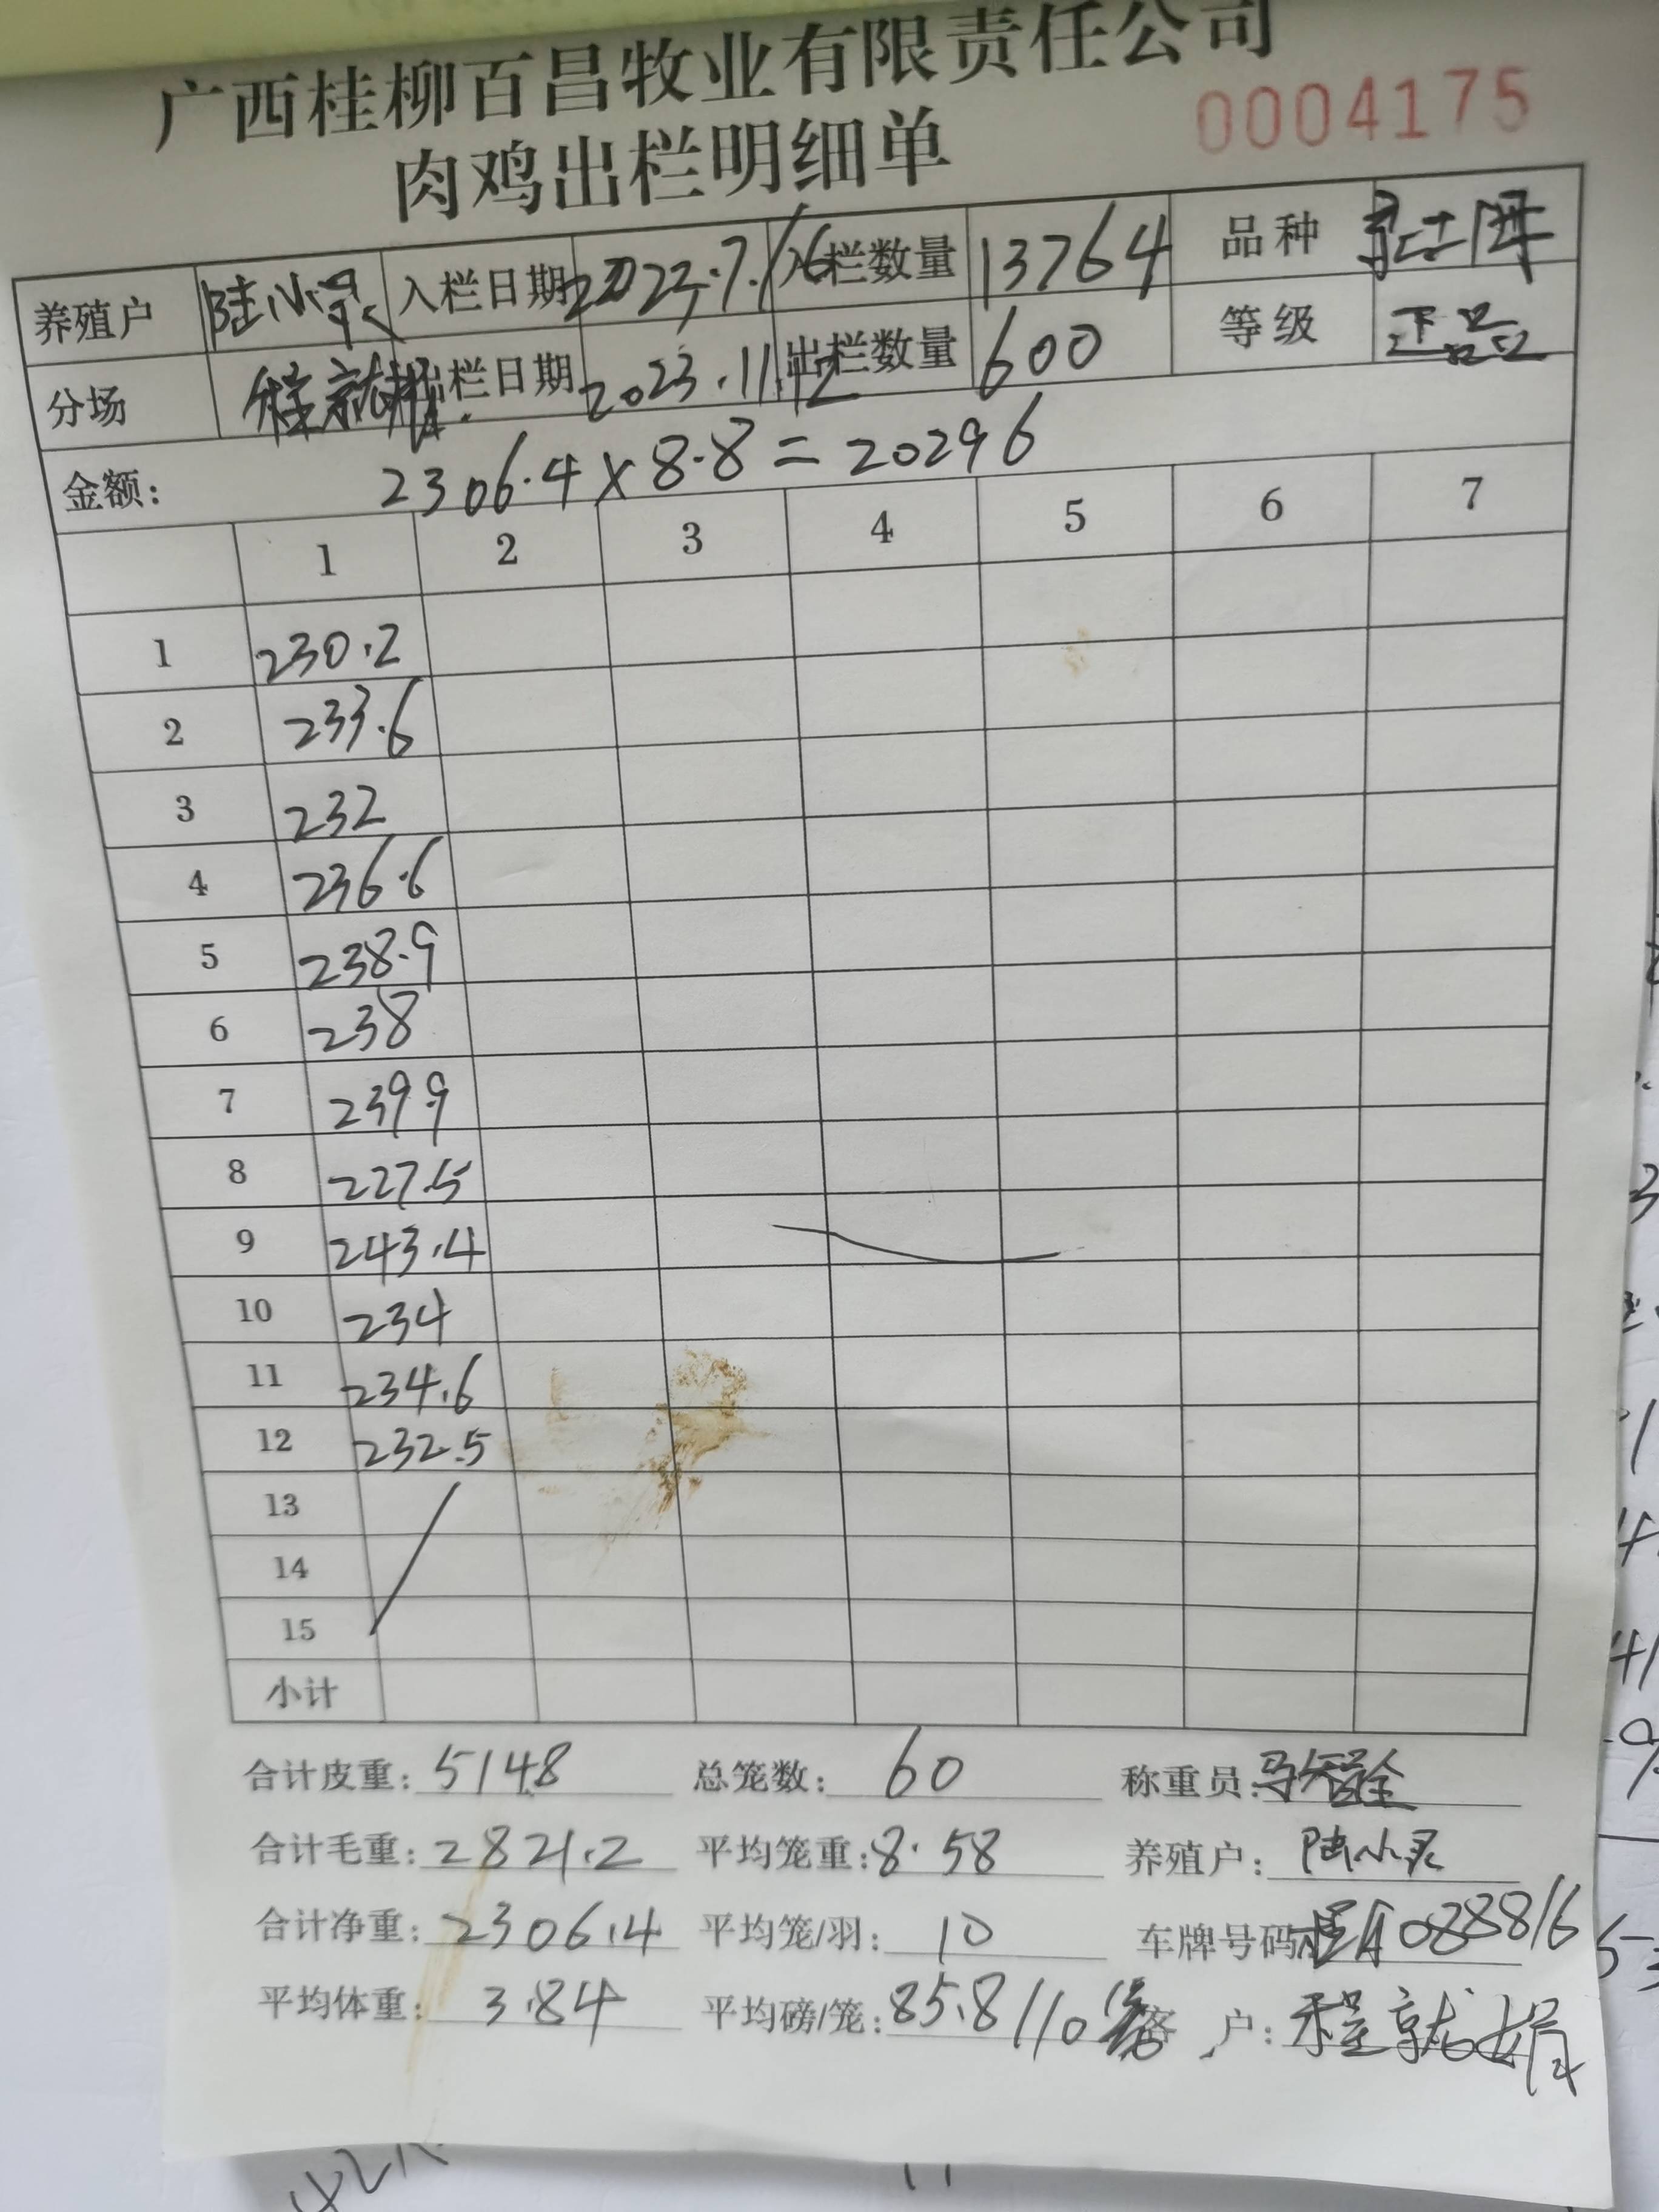 广西桂柳百昌牧业有限责任公司
肉鸡出栏明细单 0004175
养殖户 陆小灵 入栏日期 2023.7.16 入栏数量 13764 品种
分场 程就娟 出栏日期 2023.11.12 出栏数量 600 等级 正品
金额: 2306.4×8.8=20296
1 2 3 4 5 6 7
1 230.2
2 233.6
3 232
4 236.6
5 238.9
6 238
7 239.9
8 227.5
9 243.4
10 234
11 234.6
12 232.5
13
14
15
小计
合计皮重: 5148 总笼数: 60 称重员:
合计毛重: 2821.2 平均笼重: 8.58 养殖户: 陆小灵
合计净重: 2306.4 平均笼/羽: 10 车牌号码: 桂A088816
平均体重: 3.84 平均磅/笼: 85.8/10 客户: 程就娟